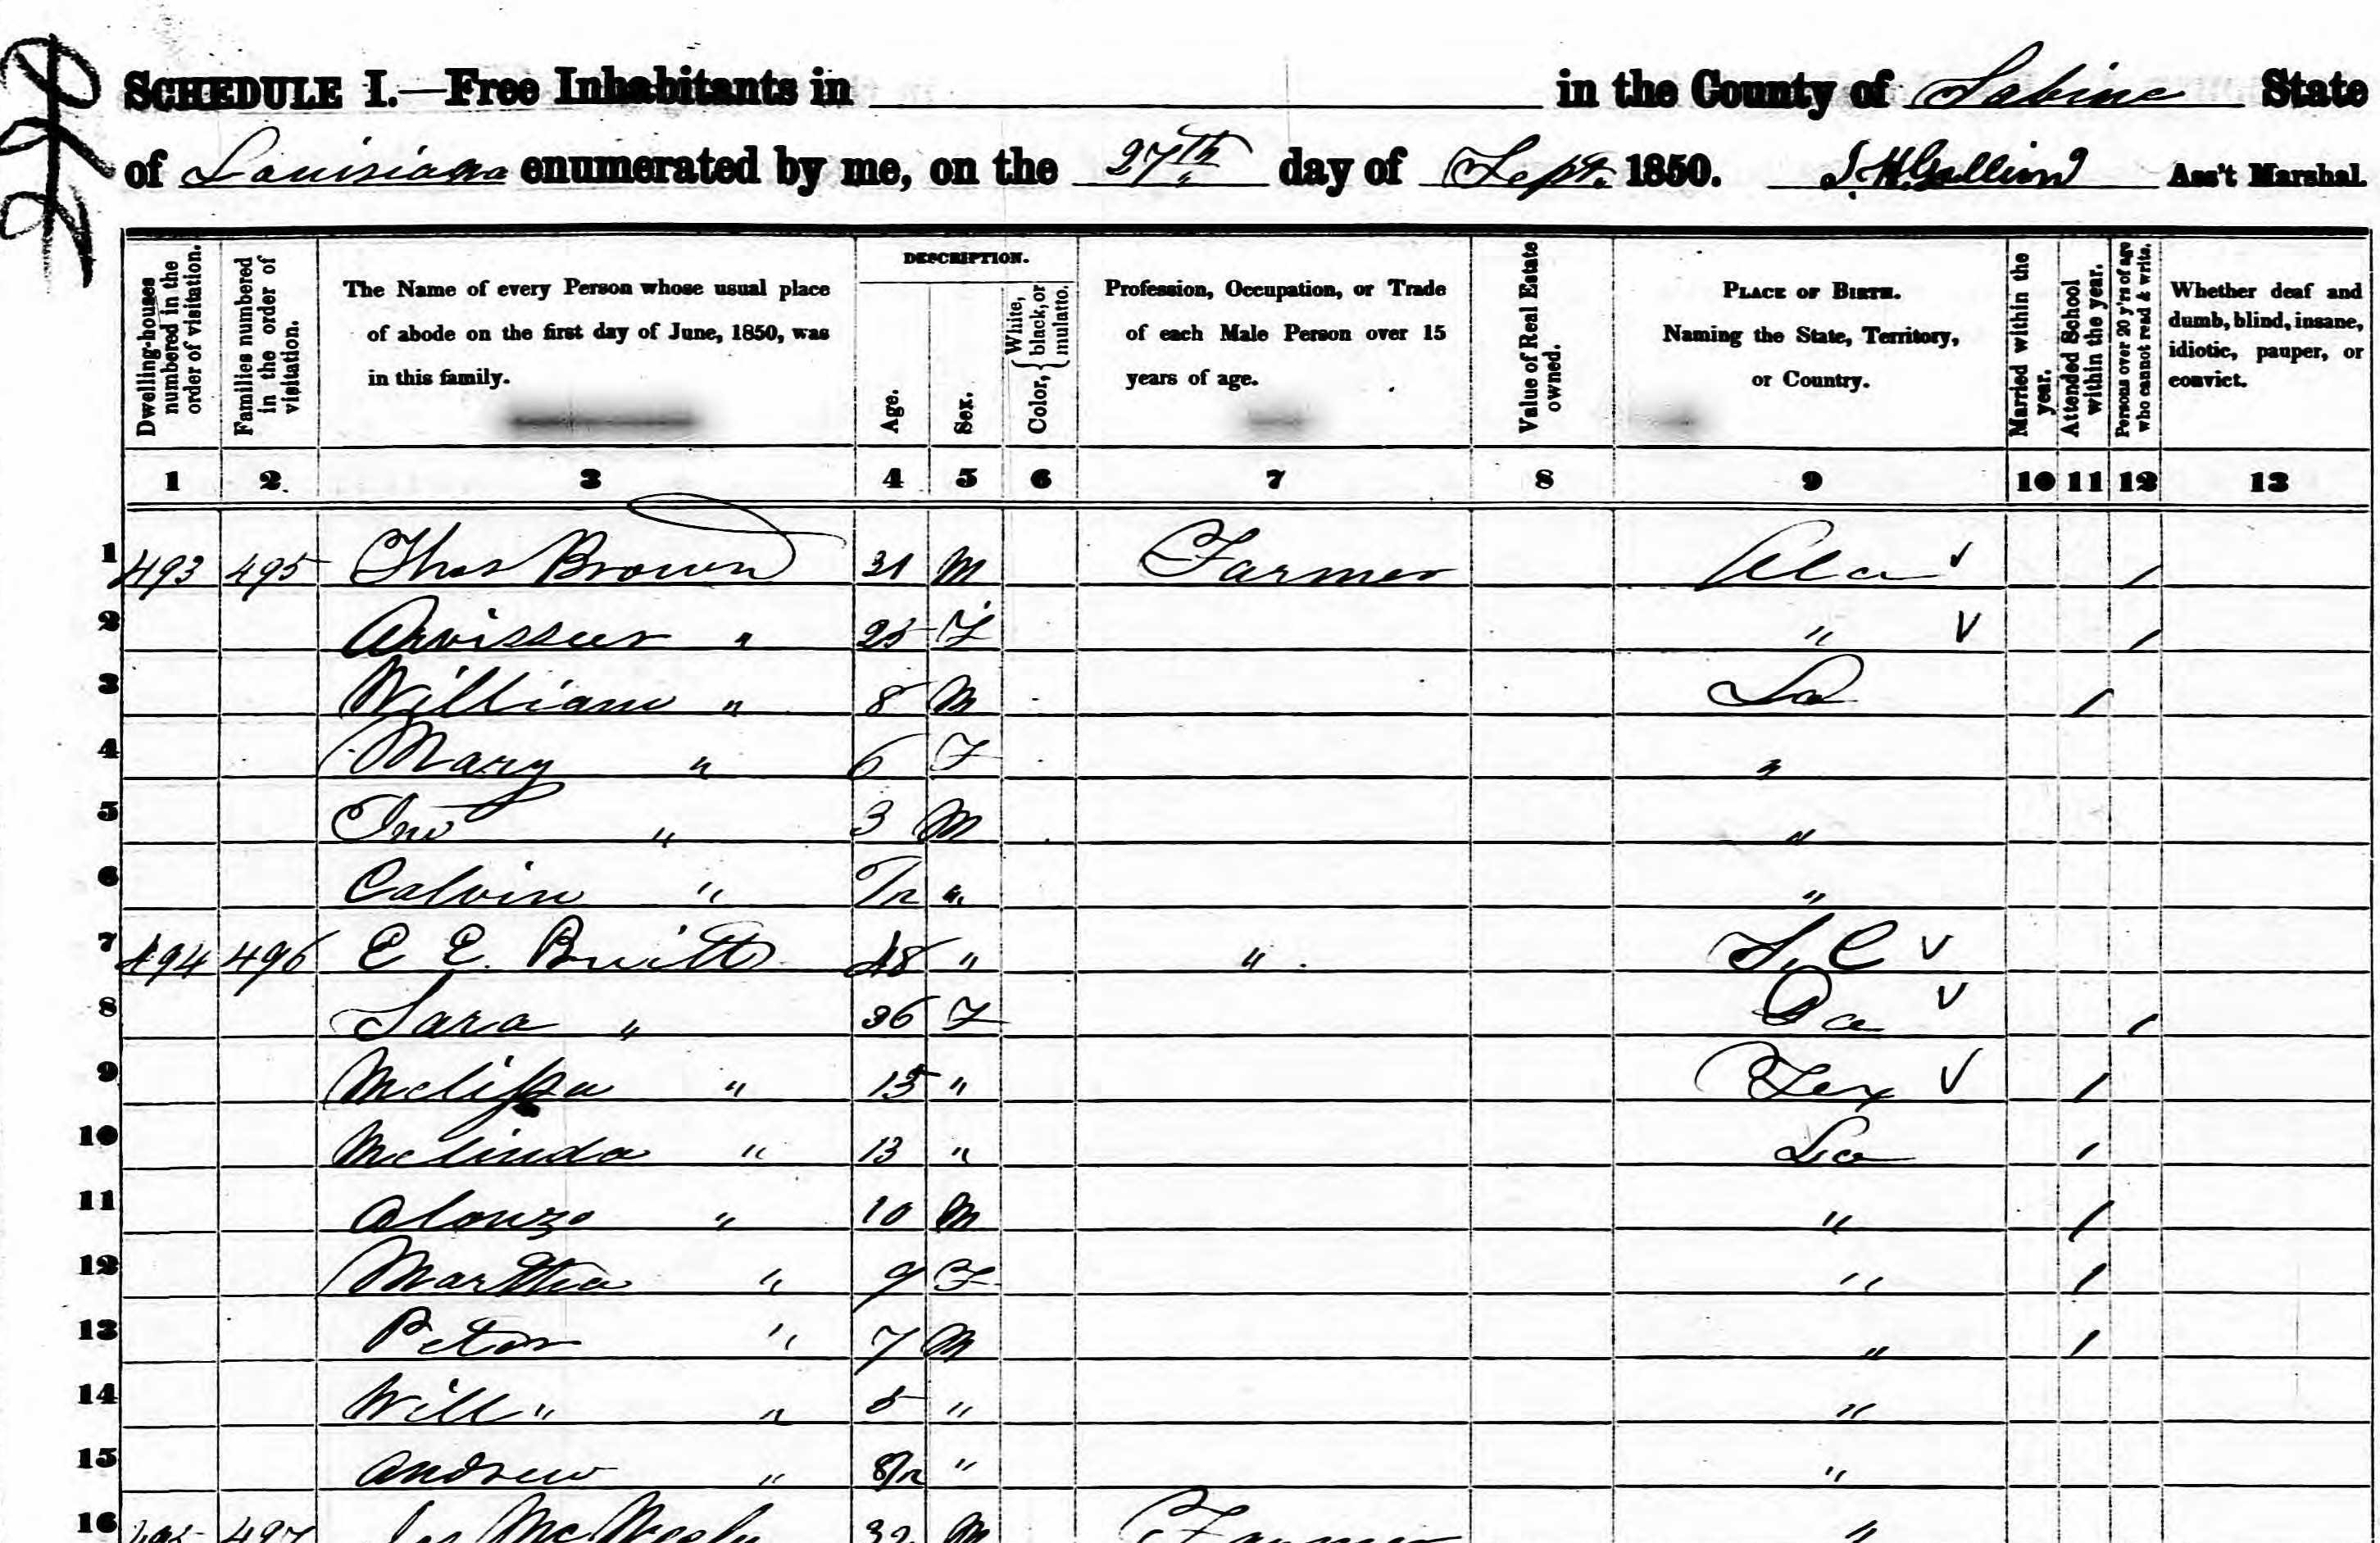 SCHEDULE I.—Free Inhabitants in in the County of Sabine State
of Louisiana enumerated by me, on the 27th day of Sept. 1850. Ass't Marshal.
Dwelling-houses numbered in the order of visitation.
Families numbered in the order of visitation.
The Name of every Person whose usual place of abode on the first day of June, 1850, was in this family.
DESCRIPTION.
Age.
Sex.
Color, { White, black, or mulatto.
Profession, Occupation, or Trade of each Male Person over 15 years of age.
Value of Real Estate owned.
PLACE OF BIRTH. Naming the State, Territory, or Country.
Married within the year.
Attended School within the year.
Persons over 20 y'rs of age who cannot read & write.
Whether deaf and dumb, blind, insane, idiotic, pauper, or convict.
1 2 3 4 5 6 7 8 9 10 11 12 13
1 493 495 Thos Brown 31 M Farmer Ala √ /
2 " 25 F " √ /
3 William " 8 M La /
4 Mary " 6 F "
5 Jno " 3 M "
6 Calvin " "  "
7 494 496 E E. Britt 48 " " S. C √
8 Sara " 36 F Ga √ /
9 Melissa " 15 " Tex √ /
10 Melinda " 13 " La /
11 Alonzo " 10 M " /
12 Martha " 9 F " /
13 Peter " 7 M " /
14 Will " " 5 " "
15 Andrew " 8/12 " "
16 495 497 32 M Farmer "